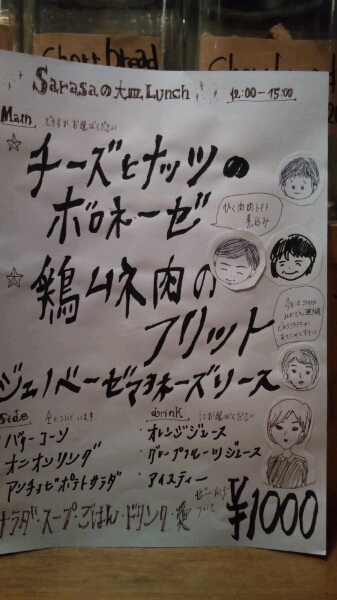 Short bread
Sarasaの大皿Lunch 12:00-15:00
Main どちらかお選びください
☆チーズとナッツの
ボロネーゼ
ひく肉のトマト
煮込み
☆鶏ムネ肉の
フリット
ジェノベーゼマヨネーズソース
Side 全てついています
・バターコーン
・オニオンリング
・アンチョビポテトサラダ
drink 1つお選びください
・オレンジジュース
・グレープフルーツジュース
・アイスティー
サラダ・スープ・ごはん・ドリンク・愛
ぜーんぶ
ついて
¥1000